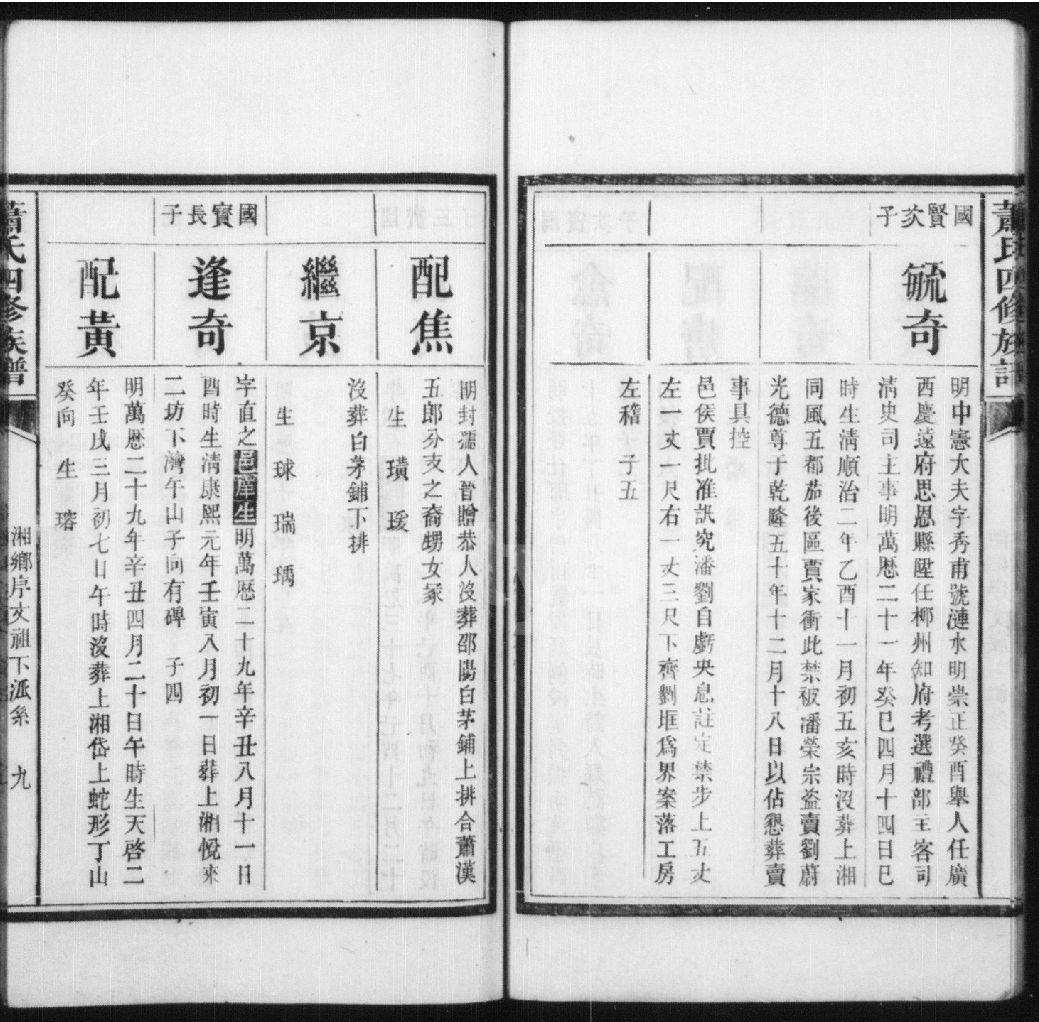 蕭氏四修族譜
國賢次子
毓奇
明中憲大夫字秀甫號漣水明崇正癸酉舉人任廣
西慶遠府思恩縣陞任柳州知府考選禮部主客司
淸史司主事明萬厯二十一年癸巳四月十四日巳
時生淸順治二年乙酉十一月初五亥時沒葬上湘
同風五都茄後區賈家衝此禁被潘榮宗盜賣劉蔚
光德尊于乾隆五十年十二月十八日以佔懇葬賣
事具控
邑侯賈批准訊究潘劉自虧央息註定禁步上五丈
左一丈八尺右一丈三尺下齊劉堐爲界案落工房
左稽　子五
配焦
明封孺人晉贈恭人沒葬邵陽白茅鋪上排合蕭漢
五郎分支之裔甥女冢
生　璜　瑗
繼京
沒葬白茅鋪下排
生　球　瑞　瑀
國寶長子
逢奇
字直之邑庠生明萬厯二十九年辛丑八月十一日
酉時生清康熙元年壬寅八月初一日葬上湘悅來
二坊下灣午山子向有碑　子四
配黃
明萬厯二十九年辛丑四月二十日午時生天啓二
年壬戌三月初七日午時沒葬上湘岱上蛇形丁山
癸向　生　瑢
蕭氏四修族譜
湘鄉序文祖下派系　九